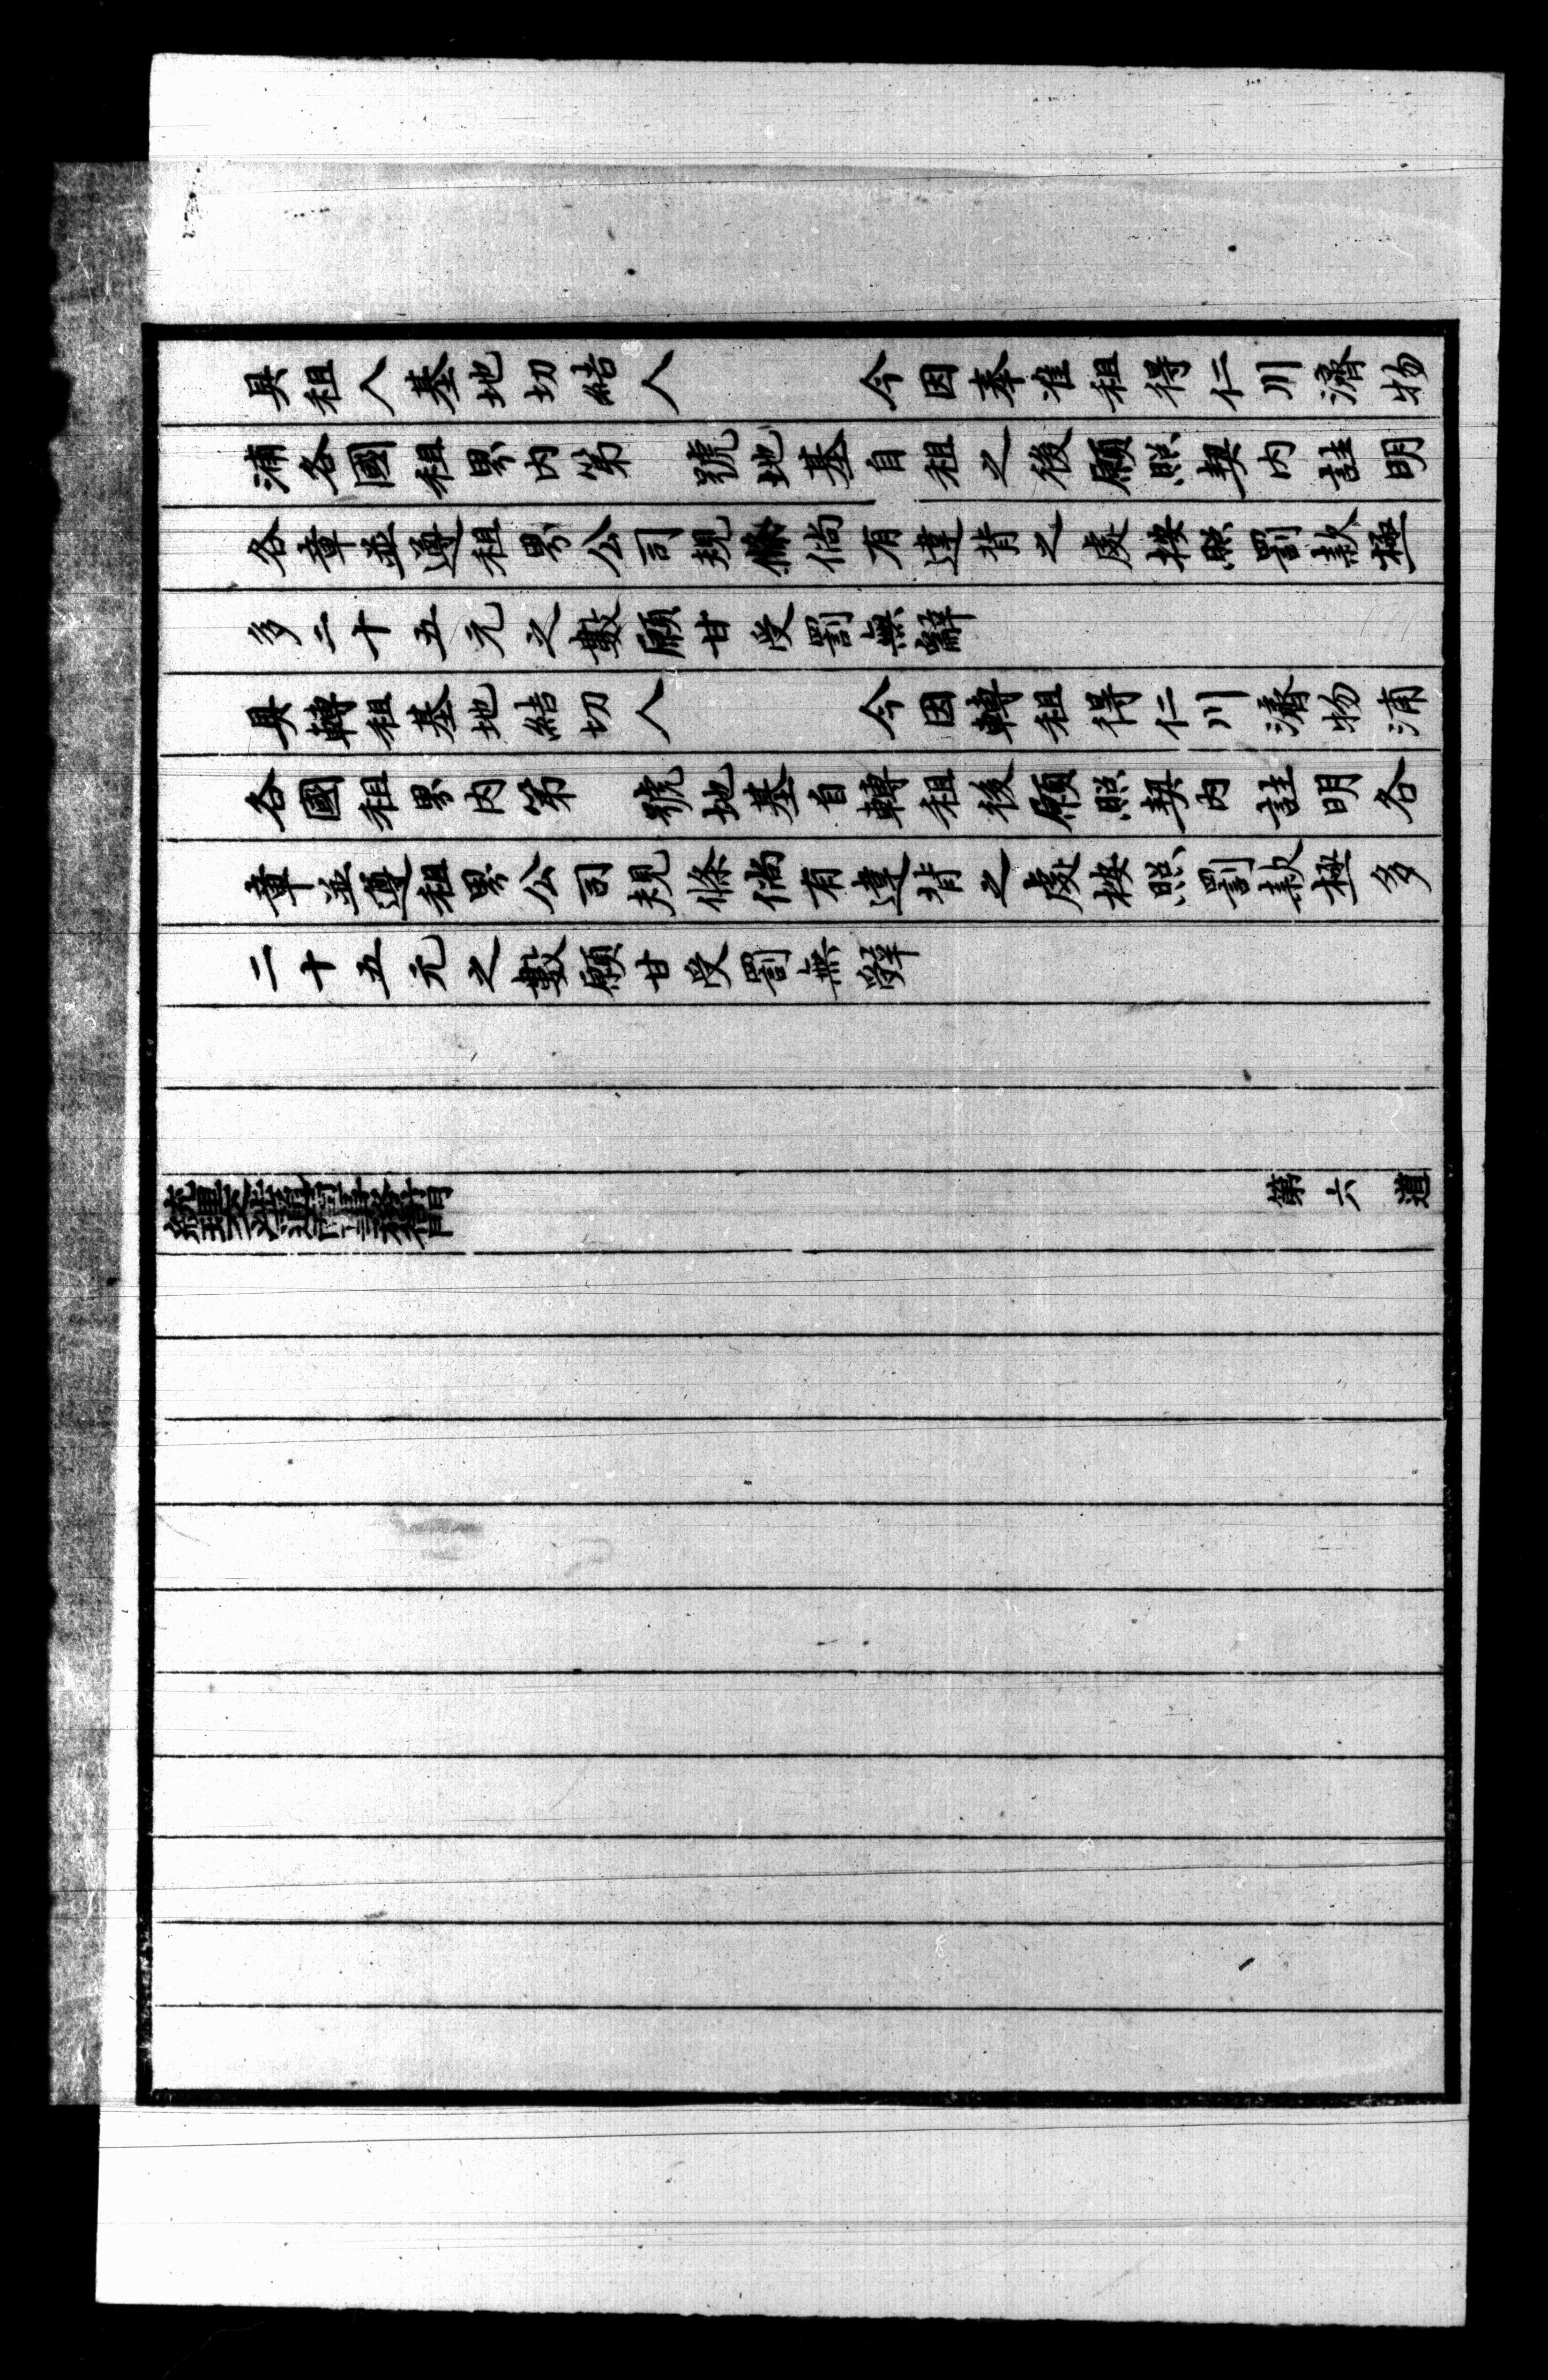 具租人基地切結人　　　今因奉准租得仁川濟物
浦各國租界内第　號地基自租之後願照契内註明
各章並遵租界公司規條倘有違背之處按照罰款極
多二十五元之數願甘受罰無辭
具轉租基地結切人　　　今因轉租得仁川濟物浦
各國租界内第　號地基自轉租後願照契内註明各
章並遵租界公司規條倘有違背之處按照罰款極多
二十五元之數願甘受罰無辭
統理交涉通商事務衙門　　　第六道